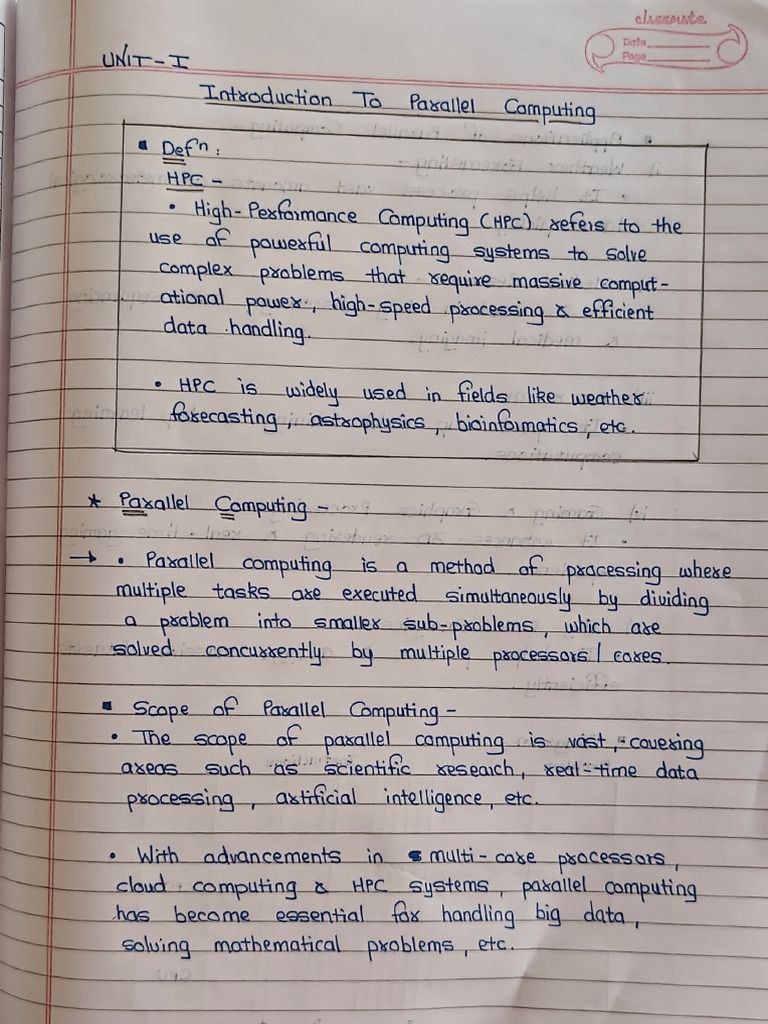 classmate
Date
Page
UNIT-I
Introduction To Parallel Computing
▪ Defⁿ:
HPC -
• High-Performance Computing (HPC) refers to the
use of powerful computing systems to solve
complex problems that require massive comput-
ational power, high-speed processing & efficient
data handling.
• HPC is widely used in fields like weather
forecasting, astrophysics, bioinformatics, etc.
* Parallel Computing -
→ • Parallel computing is a method of processing where
multiple tasks are executed simultaneously by dividing
a problem into smaller sub-problems, which are
solved concurrently by multiple processors/cores.
▪ Scope of Parallel Computing -
• The scope of parallel computing is vast, covering
areas such as scientific research, real-time data
processing, artificial intelligence, etc.
• With advancements in multi-core processors,
cloud computing & HPC systems, parallel computing
has become essential for handling big data,
solving mathematical problems, etc.